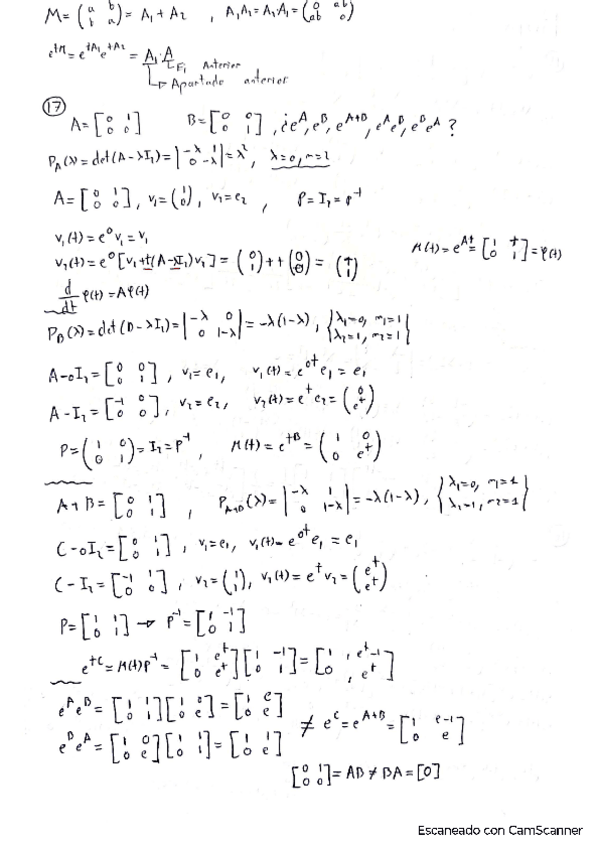 M = (a b; b a) = A₁ + A₂ , A₁A₂ = A₂A₁ = (0 ab; ab 0)
e^{tM} = e^{tA₁} e^{tA₂} = A₁ · A
Fi Anterior
Apartado anterior
(17)
A = [0 1; 0 0] B = [0 0; 0 1] , ¿e^A, e^B, e^{A+B}, e^A e^B, e^B e^A ?
P_A(λ) = det(A-λI₂) = |-λ 1; 0 -λ| = λ², λ=0, m=2
A = [0 1; 0 0], v₁ = (1; 0), v₂ = e₂ , P = I₂ = P⁻¹
v₁(t) = e⁰v₁ = v₁
v₂(t) = e⁰[v₂ + t(A-λI₂)v₂] = (0; 1) + t(1; 0) = (t; 1)
M(t) = e^{At} = [1 t; 0 1] = φ(t)
d/dt φ(t) = Aφ(t)
P_B(λ) = det(B-λI₂) = |-λ 0; 0 1-λ| = -λ(1-λ), {λ₁=0, m₁=1; λ₂=1, m₂=1}
A-0I₂ = [0 0; 0 1] , v₁ = e₁ , v₁(t) = e^{0t} e₁ = e₁
A-I₂ = [-1 0; 0 0], v₂ = e₂, v₂(t) = e^t e₂ = (0; e^t)
P = (1 0; 0 1) = I₂ = P⁻¹ , M(t) = e^{tB} = (1 0; 0 e^t)
A+B = [0 1; 0 1] , P_{A+B}(λ) = |-λ 1; 0 1-λ| = -λ(1-λ), {λ₁=0, m₁=1; λ₂=1, m₂=1}
C-0I₂ = [0 1; 0 1] , v₁ = e₁, v₁(t) = e^{0t} e₁ = e₁
C-I₂ = [-1 1; 0 0], v₂ = (1; 1), v₂(t) = e^t v₂ = (e^t; e^t)
P = [1 1; 0 1] → P⁻¹ = [1 -1; 0 1]
e^{tC} = M(t)P⁻¹ = [1 e^t; 0 e^t][1 -1; 0 1] = [1 , e^t-1; 0 , e^t]
e^A e^B = [1 1; 0 1][1 0; 0 e] = [1 e; 0 e]
e^B e^A = [1 0; 0 e][1 1; 0 1] = [1 1; 0 e]
≠ e^C = e^{A+B} = [1 e-1; 0 e]
[0 1; 0 0] = AB ≠ BA = [0]
Escaneado con CamScanner